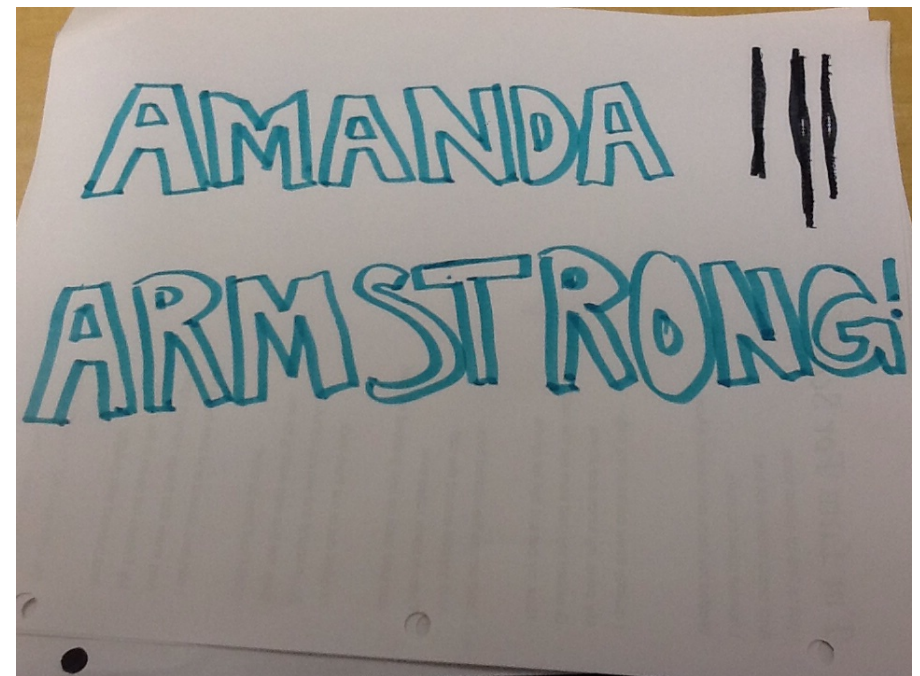 AMANDA
ARMSTRONG!